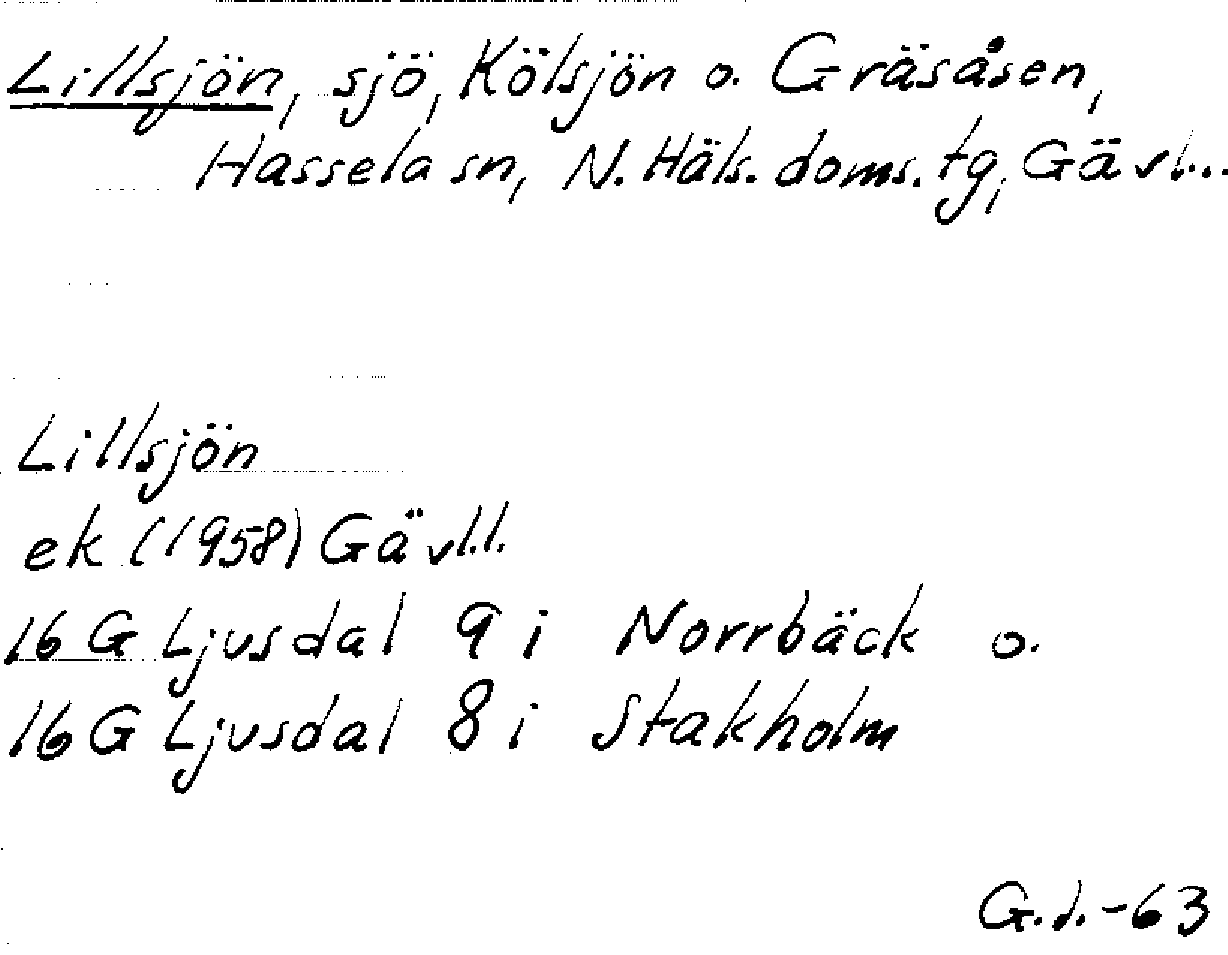 Lillsjön, sjö, Kölsjön o. Gräsåsen,
Hassela sn, N. Häls. doms. tg, Gävl...
Lillsjön
ek (1958) Gävl.l.
16 G Ljusdal 9 i Norrbäck o.
16 G Ljusdal 8 i Stakholm
-63